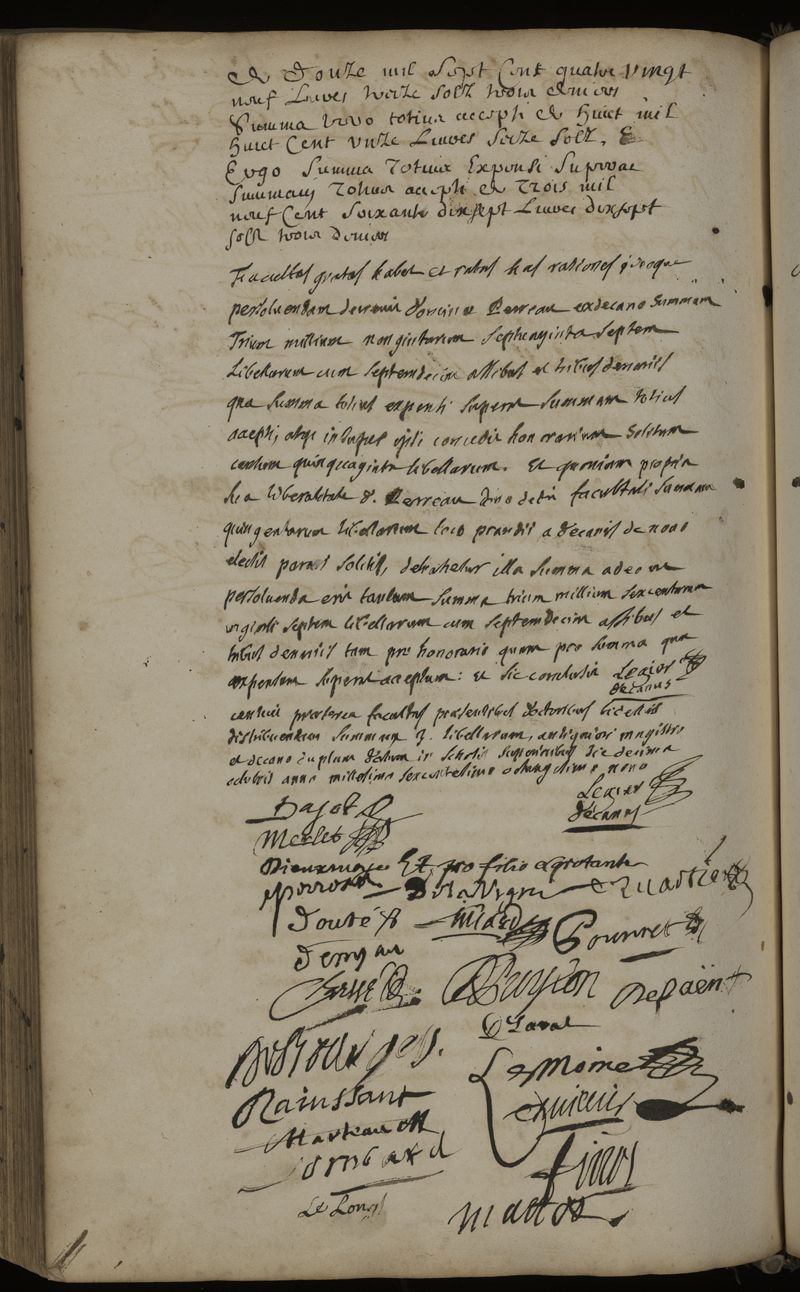 de Douze mil Sept Cent quatre vingt
neuf Livres treize solz trois deniers
Summa vero totius accepti de huict mil
huict Cent unze Livres Seize solz,
Ergo Summa Totius Expensi Superat
Summam Totius accepti de Trois mil
neuf Cent Soixante dixsept Livres dixsept
solz trois deniers
Facultas gratas habet et ratas has rationes
persoluendam decreuit Perreau exdecano Summam
Trium millium nongintarum septuaginta septem
Libellarum cum septemdecim assibus et tribus denariis
qua summa totius expensi superat summam totius
accepti, atque insuper ipsi concedit honorarium solitum
centum quinquaginta libellarum. Et quoniam propria
sua liberalitate d. Perreau dedit facultati summam
quingentarum libellarum loco prandii a decanis de nouo
electis parari soliti, detrahetur illa summa adeo ut
persoluenda erit tantum summa trium millium sexcentarum
viginti septem libellarum cum septemdecim assibus et
tribus denariis tam pro honorario quam pro summa qua
expensum superat acceptum: et sic conclusit Legier
decanus
censuit praeterea facultas praesentibus doctoribus
distribuendam summam 3. libellarum, antiquiori magistro
et decano duplum datum in scholis superioribus die decima
octobris anno millesimo sexcentesimo octuagesimo nono
Legier
decanus
Dajot
Merlet
Dieuxivoye Et pro filio aegrotante
Perreau De la Vigne
Douté
Pourret
Puylon Depaën
D Laval
Desbourges
Le Moine
Rainssant
Marteau
Finot
Le Long
Mattot